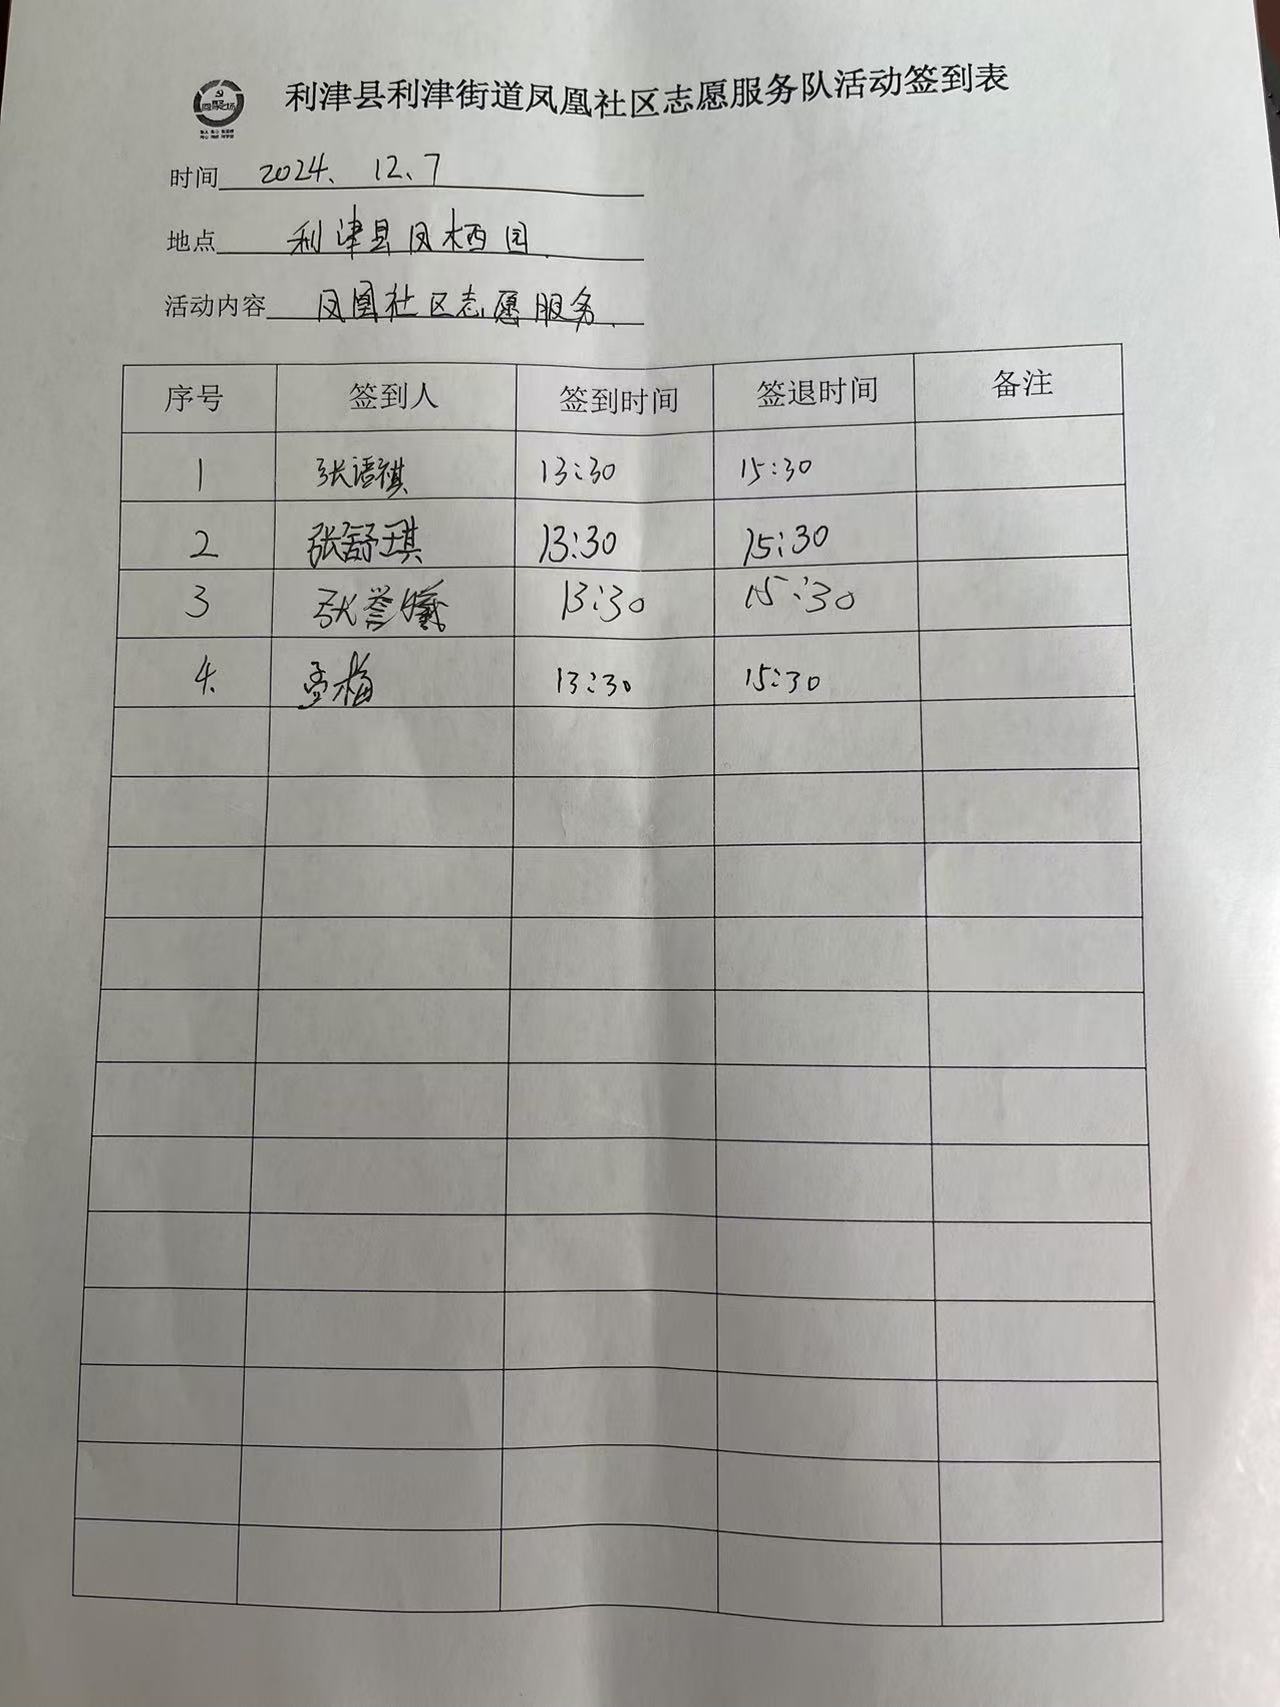 利津县利津街道凤凰社区志愿服务队活动签到表
时间 2024、12、7
地点 利津县凤栖园
活动内容 凤凰社区志愿服务
序号 签到人 签到时间 签退时间 备注
1 张语祺 13:30 15:30
2 张舒琪 13:30 15:30
3 张誉曦 13:30 15:30
4. 孟梅 13:30 15:30